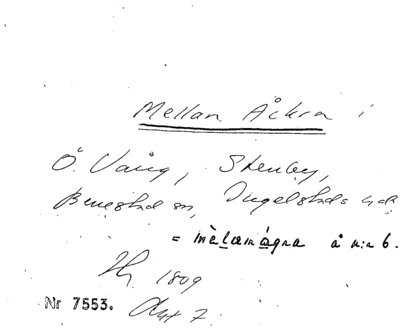 Mellan Åkra i
Ö. Vång, Stenby,
Benestads sn, Ingelstads hd
= mèlæmágra å n:r 6.
Hy 1809
Akt 7
Nr 7553.